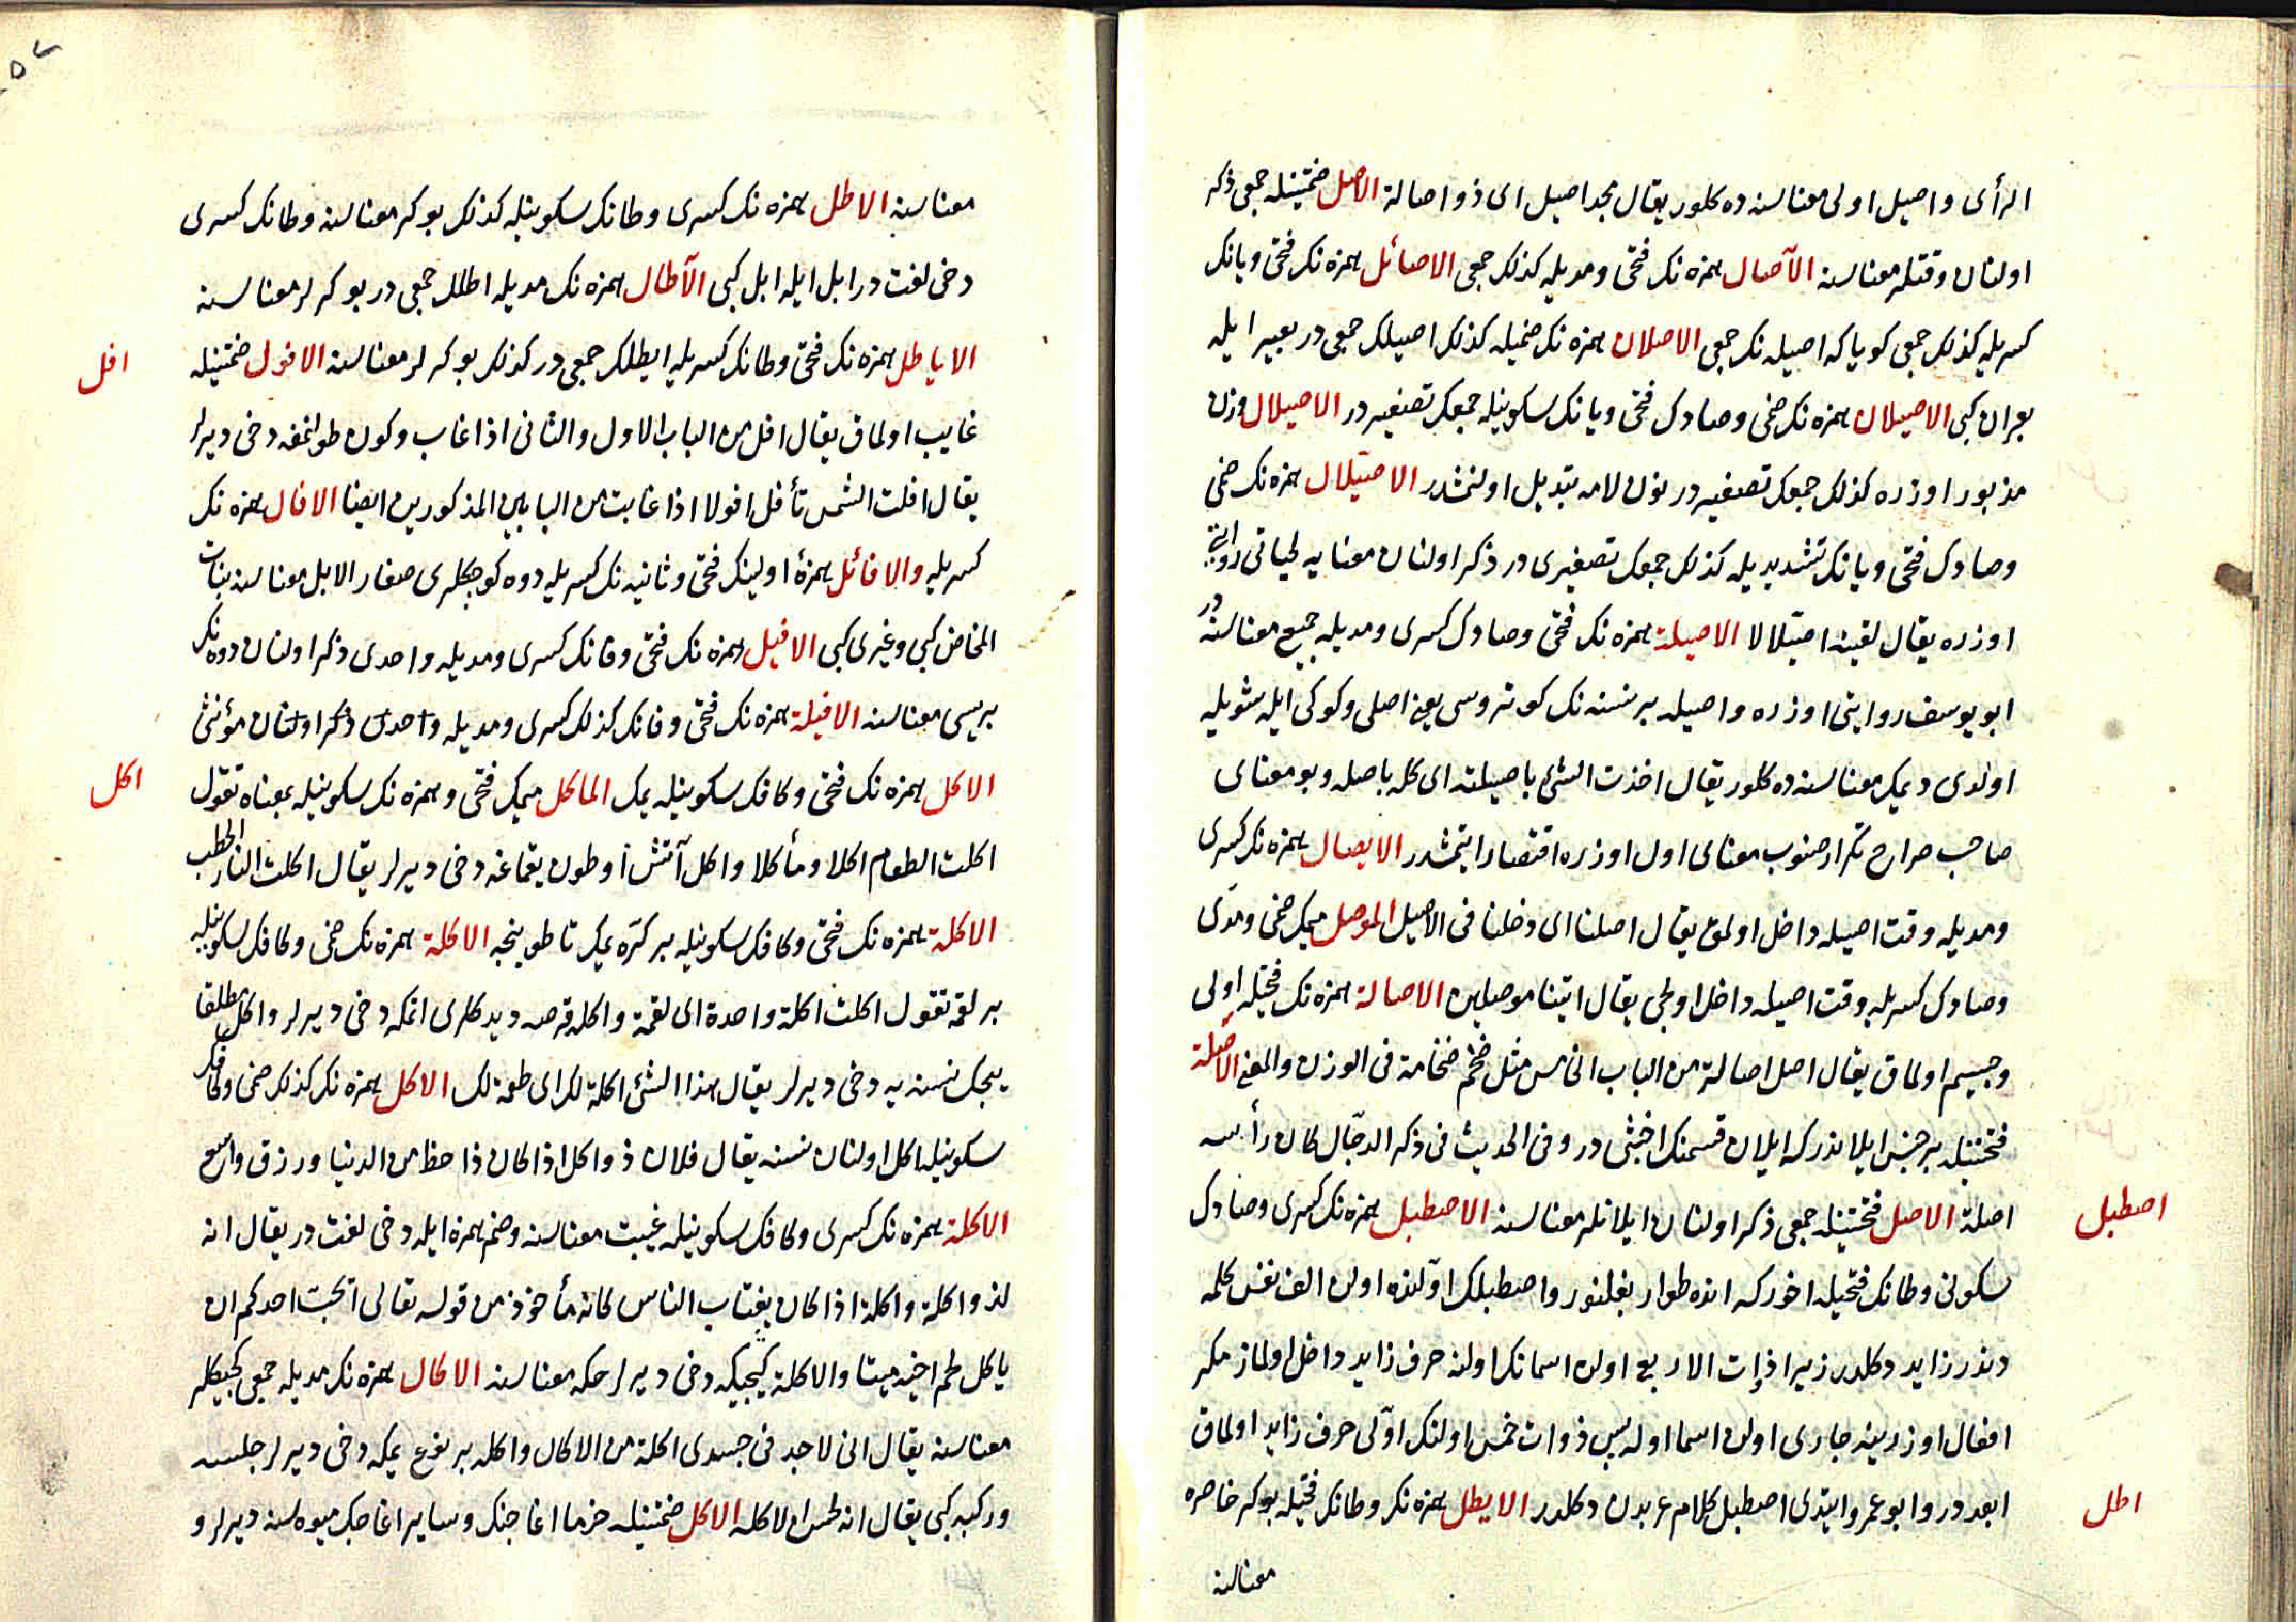 الرأى واصيل اولى معناسنه ده كلور يقال مجد اصيل اى ذو اصالة الاصل ضمتينله جمعى ذكر
اولنان وقتلر معناسنه الآصال همزه نك فتحى ومديله كذلك جمعى الاصائل همزه نك فتحى ويانك
كسريله كذلك جمعى كويا كه اصيله نك جمعى الاصلان همزه نك ضميله كذلك اصيلك جمعى در بعير ايله
بعران كبى الاصيلان همزه نك ضمى وصادك فتحى ويانك سكونيله جمعك تصغيريدر الاصيلال وزن
مذبور اوزره كذلك جمعك تصغيريدر نون لامه تبديل اولنمشدر الاصيّلال همزه نك ضمى
وصادك فتحى ويانك تشديديله كذلك جمعك تصغيرى در ذكر اولنان معنايه لحيانى روايتى
اوزره يقال لقيته اصيّلالا الاصيلة همزه نك فتحى وصادك كسرى ومديله جميع معناسنه در
ابو يوسف روايتى اوزره واصيله بر نسنه نك كوتروسى يعنى اصلى وكوكى ايله شويله
اولدى ديمك معناسنه ده كلور يقال اخذت الشئ باصيلته اى كله باصله وبو معناى
صاحب صراح تكرار صنوب معناى اول اوزره اقتصار ايتمشدر الايصال همزه نك كسرى
ومديله وقت اصيله داخل اولمق يقال اصلنا اى دخلنا فى الاصيل الموصل ميمك ضمى ومدّى
وصادك كسريله وقت اصيله داخل اولجى يقال اتينا موصلين الاصالة همزه نك فتحيله اولى
وجسيم اولماق يقال اصل اصالة من الباب الخامس مثل ضخم ضخامة فى الوزن والمعنى الاصلة
فتحتينله بر جنس ايلاندر كه ايلان قسمنك اخبثى در وفى الحديث فى ذكر الدجّال كان رأسه
اصلة الاصل فتحتينله جمعى ذكر اولنان ايلانلر معناسنه الاصطبل همزه نك كسرى وصادك
اصطبل
سكونى وطانك فتحيله اخور كه انده طوار بغلنور واصطبلك اوّلنده اولن الف نفس كلمه
دندر زايد دكلدر زيرا ذوات الاربع اولن اسمانك اولنه حرف زايد داخل اولماز مكر
افعال اوزرينه جارى اولن اسما اوله پس ذوات خمس اولنك اوّلى حرف زايد اولماق
ابعد در وابو عمرو ايتدى اصطبل كلام عربدن دكلدر الايطل همزه نك وطانك فتحيله بوكر خاصره
اطل
معناسنه
معناسنه الاطل همزه نك كسرى وطانك سكونيله كذلك بوكر معناسنه وطانك كسرى
دخى لغت در ابل ايله ابل كبى الآطال همزه نك مديله اطلك جمعى در بوكرلر معناسنه
الاياطل همزه نك فتحى وطانك كسريله ايطلك جمعى در كذلك بوكرلر معناسنه الافول ضمتينله
افل
غايب اولماق يقال افل من الباب الاول والثانى اذا غاب وكون طولنمغه دخى ديرلر
يقال افلت الشمس تأفل افولا اذا غابت من البابين المذكورين ايضا الافال همزه نك
كسريله والافائل همزۀ اولينك فتحى وثانيه نك كسريله دوه كوچكلرى صغار الابل معناسنه بنات
المخاض كبى وغيرى كبى الافيل همزه نك فتحى وفانك كسرى ومديله واحدى ذكر اولنان دوه نك
بريسى معناسنه الافيلة همزه نك فتحى وفانك كذلك كسرى ومديله واحدى ذكر اولنان مؤنثى
الاكل همزه نك فتحى وكافك سكونيله يمك الماكل ميمك فتحى وهمزه نك سكونيله بمعناه تقول
اكل
اكلت الطعام اكلا ومأكلا واكل آتش اوطون يقماغه دخى ديرلر يقال اكلت النار الحطب
الاكلة همزه نك فتحى وكافك سكونيله بر كرّه يمك تا طوينجه الاكلة همزه نك ضمى وكافك سكونيله
بر لقمه تقول اكلت اكلة واحدة اى لقمة واكله قرصه ديدكلرى اتمكه دخى ديرلر واكل مطلقا
يجك نسنه يه دخى ديرلر يقال هذا الشئ اكلة لك اى طعمة لك الاكل همزه نك كذلك ضمى وكافك
سكونيله اكل اولنان نسنه يقال فلان ذو اكل اذا كان ذا حظ من الدنيا ورزق واسع
الاكلة همزه نك كسرى وكافك سكونيله غيبت معناسنه وضم همزه ايله دخى لغت در يقال انه
لذو اكلة واكلة اذا كان يغتاب الناس كانه مأخوذ من قوله تعالى ايحبّ احدكم ان
ياكل لحم اخيه ميتا والاكلة كيجيكه دخى ديرلر حكه معناسنه الاكال همزه نك مديله جمعى كيجيكلر
معناسنه يقال انى لاجد فى جسدى اكلة من الاكال واكله بر نوع يمكه دخى ديرلر جلسه
وركبه كبى يقال انه لحسن الاكله الاكل ضمتينله خرما اغاجنك وساير اغاجك ميوه سنه ديرلر و